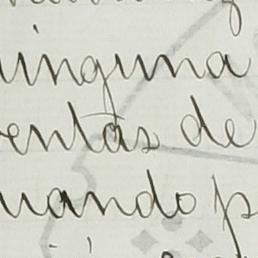 inguna
entas de
uando p